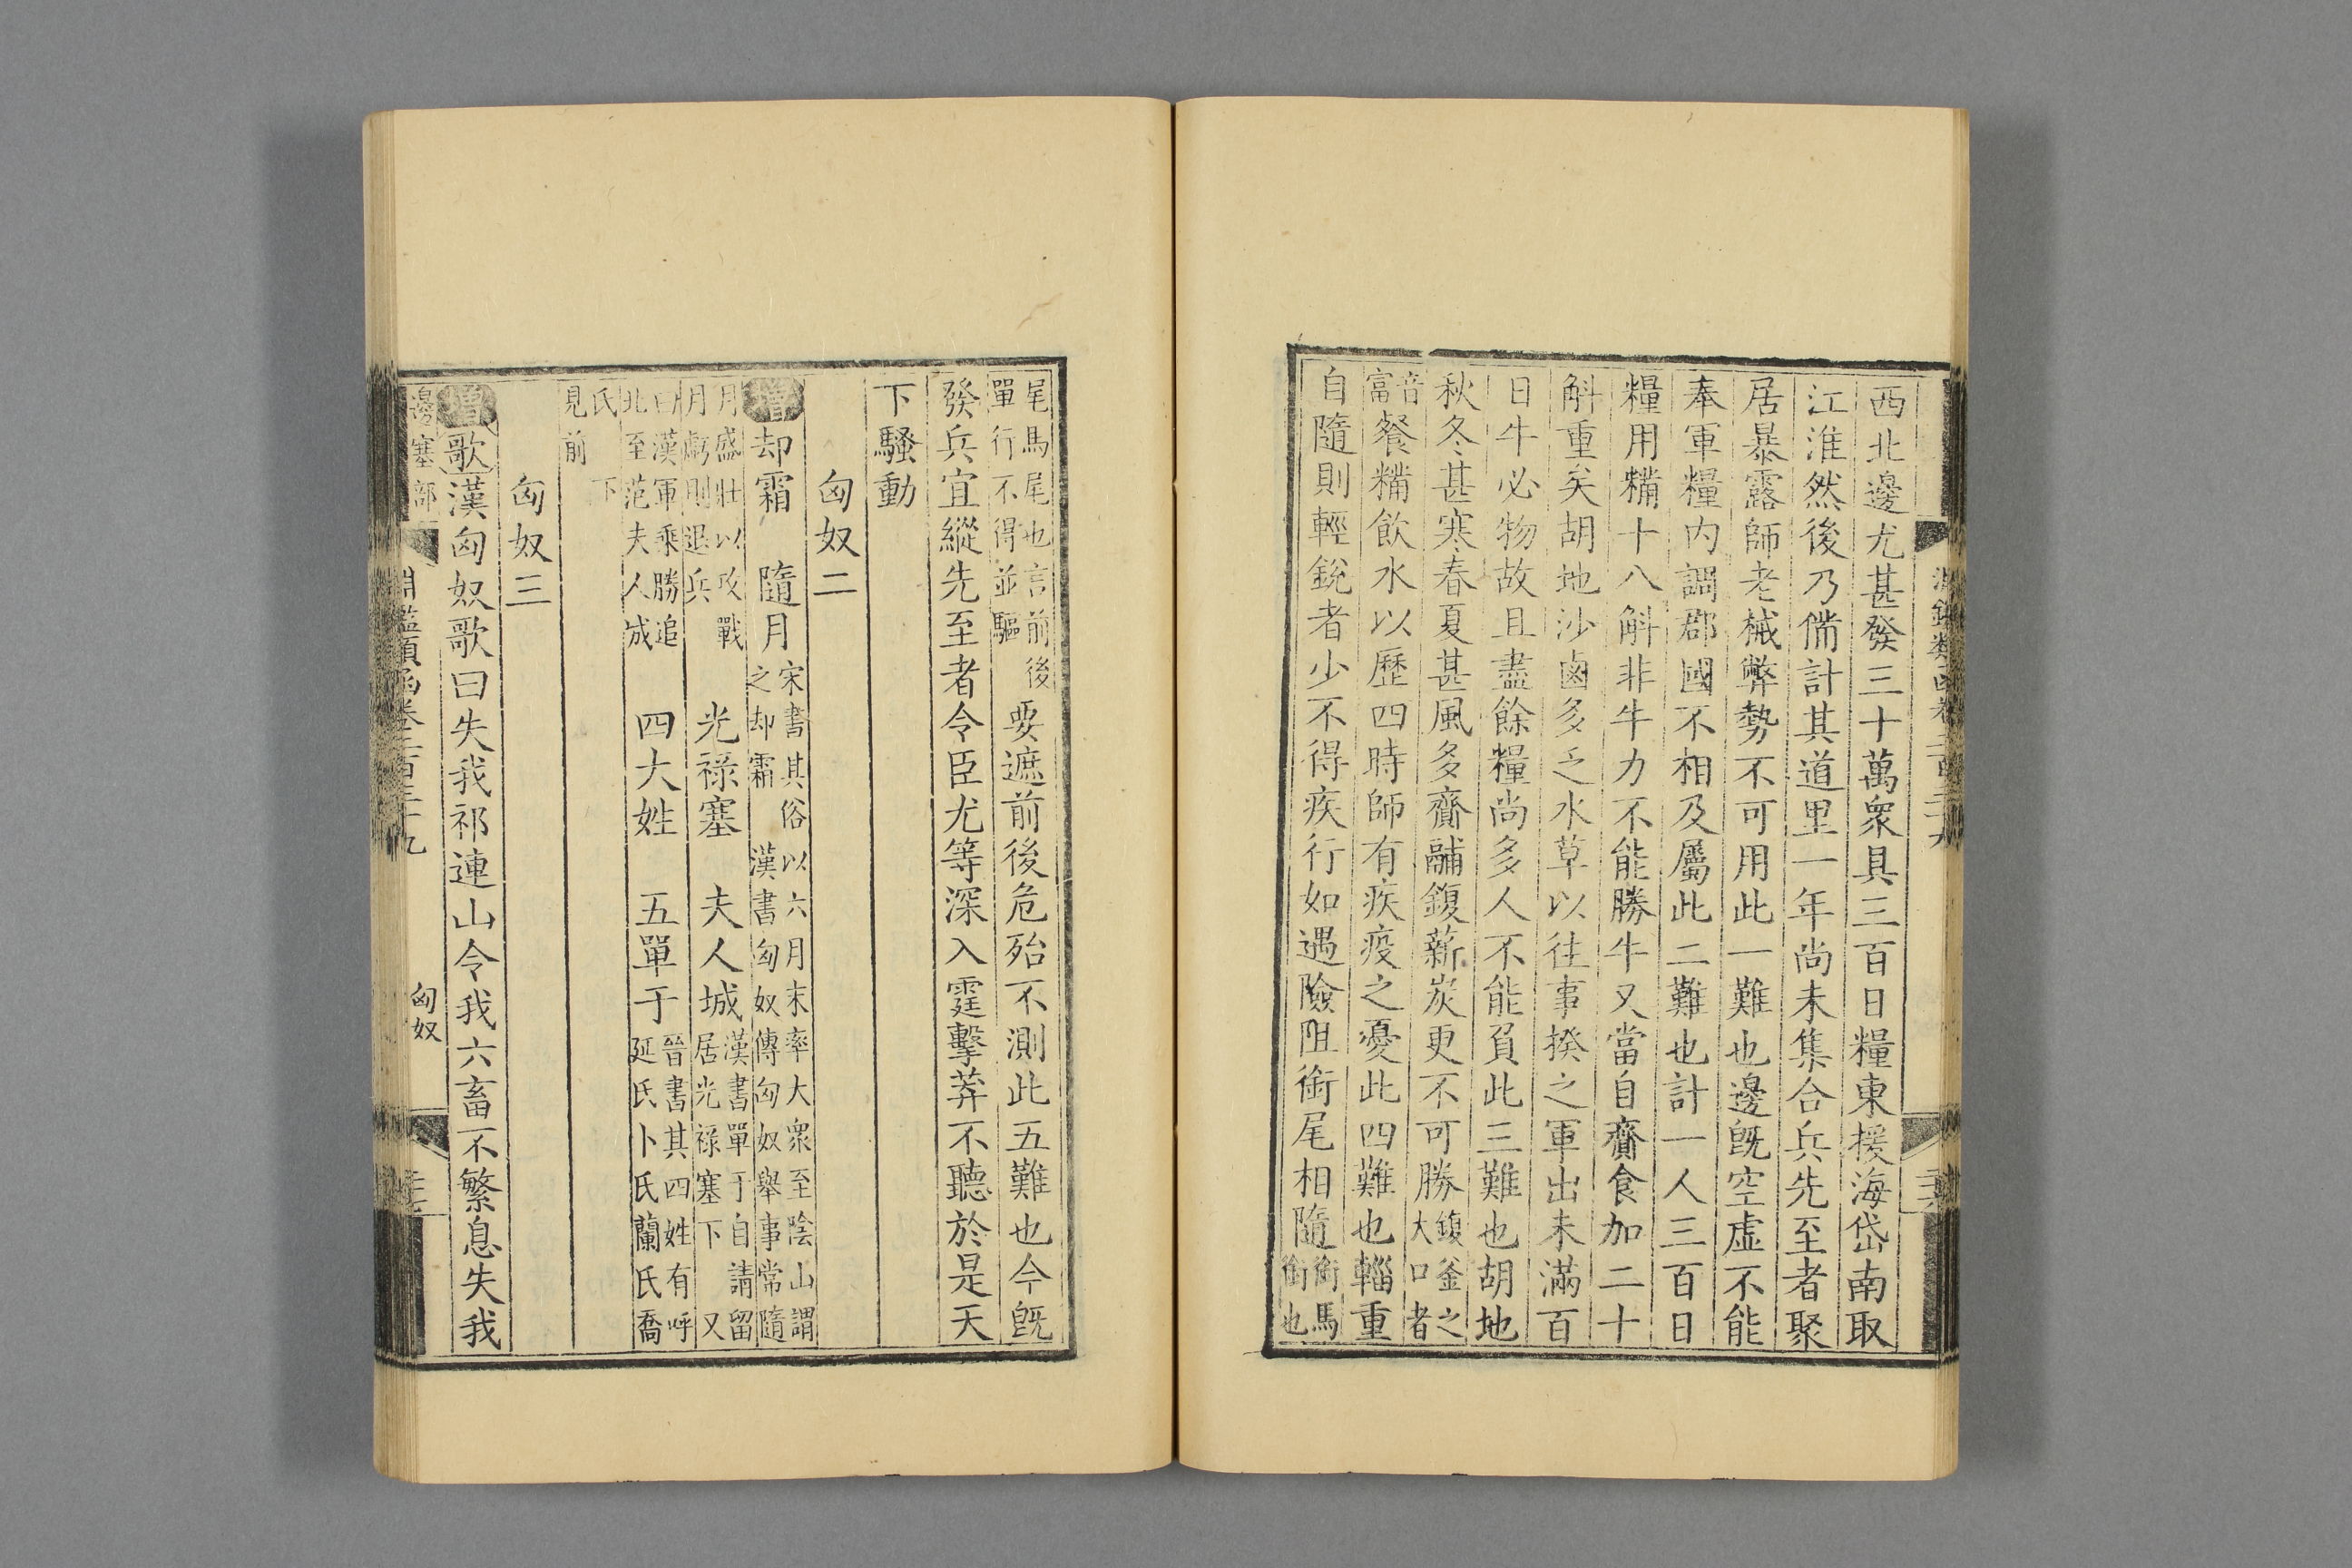 西北邊尤甚發三十萬衆具三百日糧東援海岱南取
江淮然後乃備計其道里一年尚未集合兵先至者聚
居暴露師老械弊勢不可用此一難也邊旣空虛不能
奉軍糧內調郡國不相及屬此二難也計一人三百日
糧用糒十八斛非牛力不能勝牛又當自齎食加二十
斛重矣胡地沙鹵多乏水草以往事揆之軍出未滿百
日牛必物故且盡餘糧尚多人不能負此三難也胡地
秋冬甚寒春夏甚風多齎鬴鍑薪炭更不可勝鍑釜之大口者
音富餐糒飲水以歷四時師有疾疫之憂此四難也輜重
自隨則輕銳者少不得疾行如遇險阻銜尾相隨銜馬銜也
尾馬尾也言前後單行不得並驅要遮前後危殆不測此五難也今旣
發兵宜縱先至者令臣尤等深入霆擊莽不聽於是天
下騷動
匈奴二
增却霜 隨月宋書其俗以六月末率大衆至陰山謂之却霜 漢書匈奴傳匈奴舉事常隨
月盛壯以攻戰月虧則退兵 光祿塞 夫人城漢書單于自請留居光祿塞下 又
曰漢軍乘勝追北至范夫人城 四大姓 五單于晉書其四姓有呼延氏卜氏蘭氏喬
氏 下見前
匈奴三
增歌漢匈奴歌曰失我祁連山令我六畜不繁息失我
邊塞部 淵鑑類函卷二百三十九 匈奴